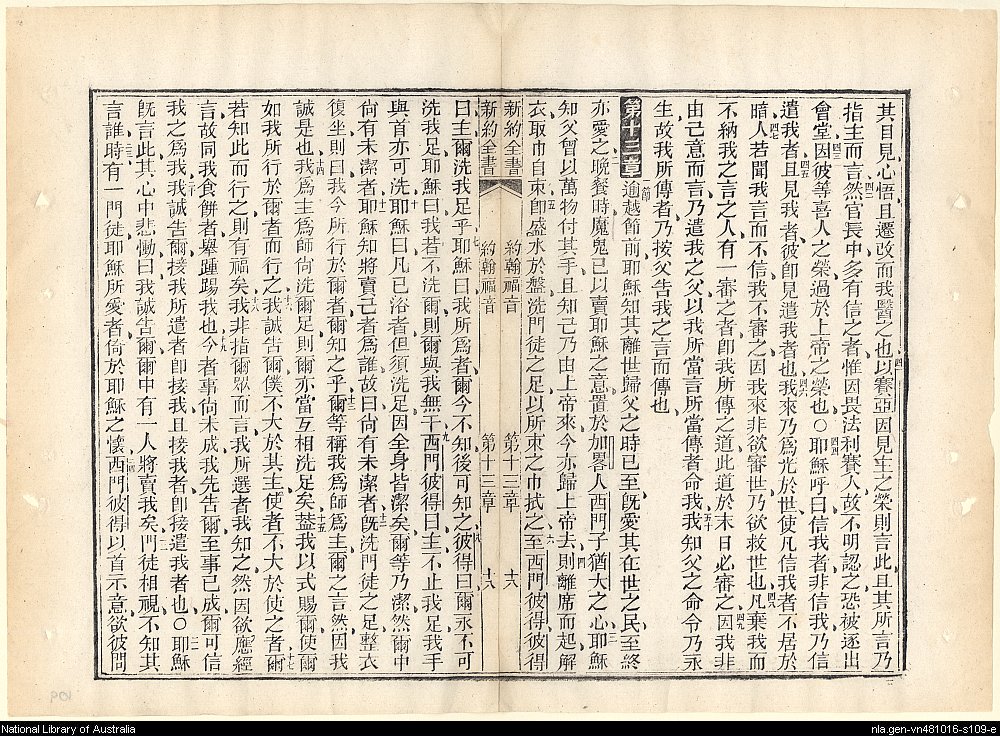 其目見心悟且遷改而我醫之也以賽亞因見主之榮則言此且其所言乃
指主而言然官長中多有信之者惟因畏法利賽人故不明認之恐被逐出
會堂因彼等喜人之榮過於上帝之榮也〇耶穌呼曰信我者非信我乃信
遣我者且見我者彼卽見遣我者也我來乃爲光於世使凡信我者不居於
暗人若聞我言而不信我不審之因我來非欲審世乃欲救世也凡棄我而
不納我之言之人有一審之者卽我所傳之道此道於末日必審之因我非
由己意而言乃遣我之父以我所當言所當傳者命我我知父之命令乃永
生故我所傳者乃按父告我之言而傳也
第十三章 一節 逾越節前耶穌知其離世歸父之時已至旣愛其在世之民至終
亦愛之晚餐時魔鬼已以賣耶穌之意置於加畧人西門子猶大之心耶穌
知父曾以萬物付其手且知己乃由上帝來今亦歸上帝去則離席而起解
衣取巾自束卽盛水於盤洗門徒之足以所束之巾拭之至西門彼得彼得
新約全書 約翰福音 第十三章 十六
新約全書 約翰福音 第十三章 十六
曰主爾洗我足乎耶穌曰我所爲者爾今不知後可知之彼得曰爾永不可
洗我足耶穌曰我若不洗爾則爾與我無干西門彼得曰主不止我足我手
與首亦可洗耶穌曰凡已浴者但須洗足因全身皆潔矣爾等乃潔然爾中
尙有未潔者耶穌知將賣己者爲誰故曰尙有未潔者旣洗門徒之足整衣
復坐則曰我今所行於爾者爾知之乎爾等稱我爲師爲主爾之言然因我
誠是也我爲主爲師尙洗爾足則爾亦當互相洗足矣葢我以式賜爾使爾
如我所行於爾者而行之我誠告爾僕不大於其主使者不大於使之者爾
若知此而行之則有福矣我非指爾眾而言我所選者我知之然因欲應經
言故同我食餅者舉踵踢我也今者事尙未成我先告爾至事已成爾可信
我之爲我我誠告爾接我所遣者卽接我且接我者卽接遣我者也〇耶穌
旣言此其心中悲慟曰我誠告爾爾中有一人將賣我矣門徒相視不知其
言誰時有一門徒耶穌所愛者倚於耶穌之懷西門彼得以首示意欲彼問
P01
National Library of Australia
nla.gen-vn481016-s109-e